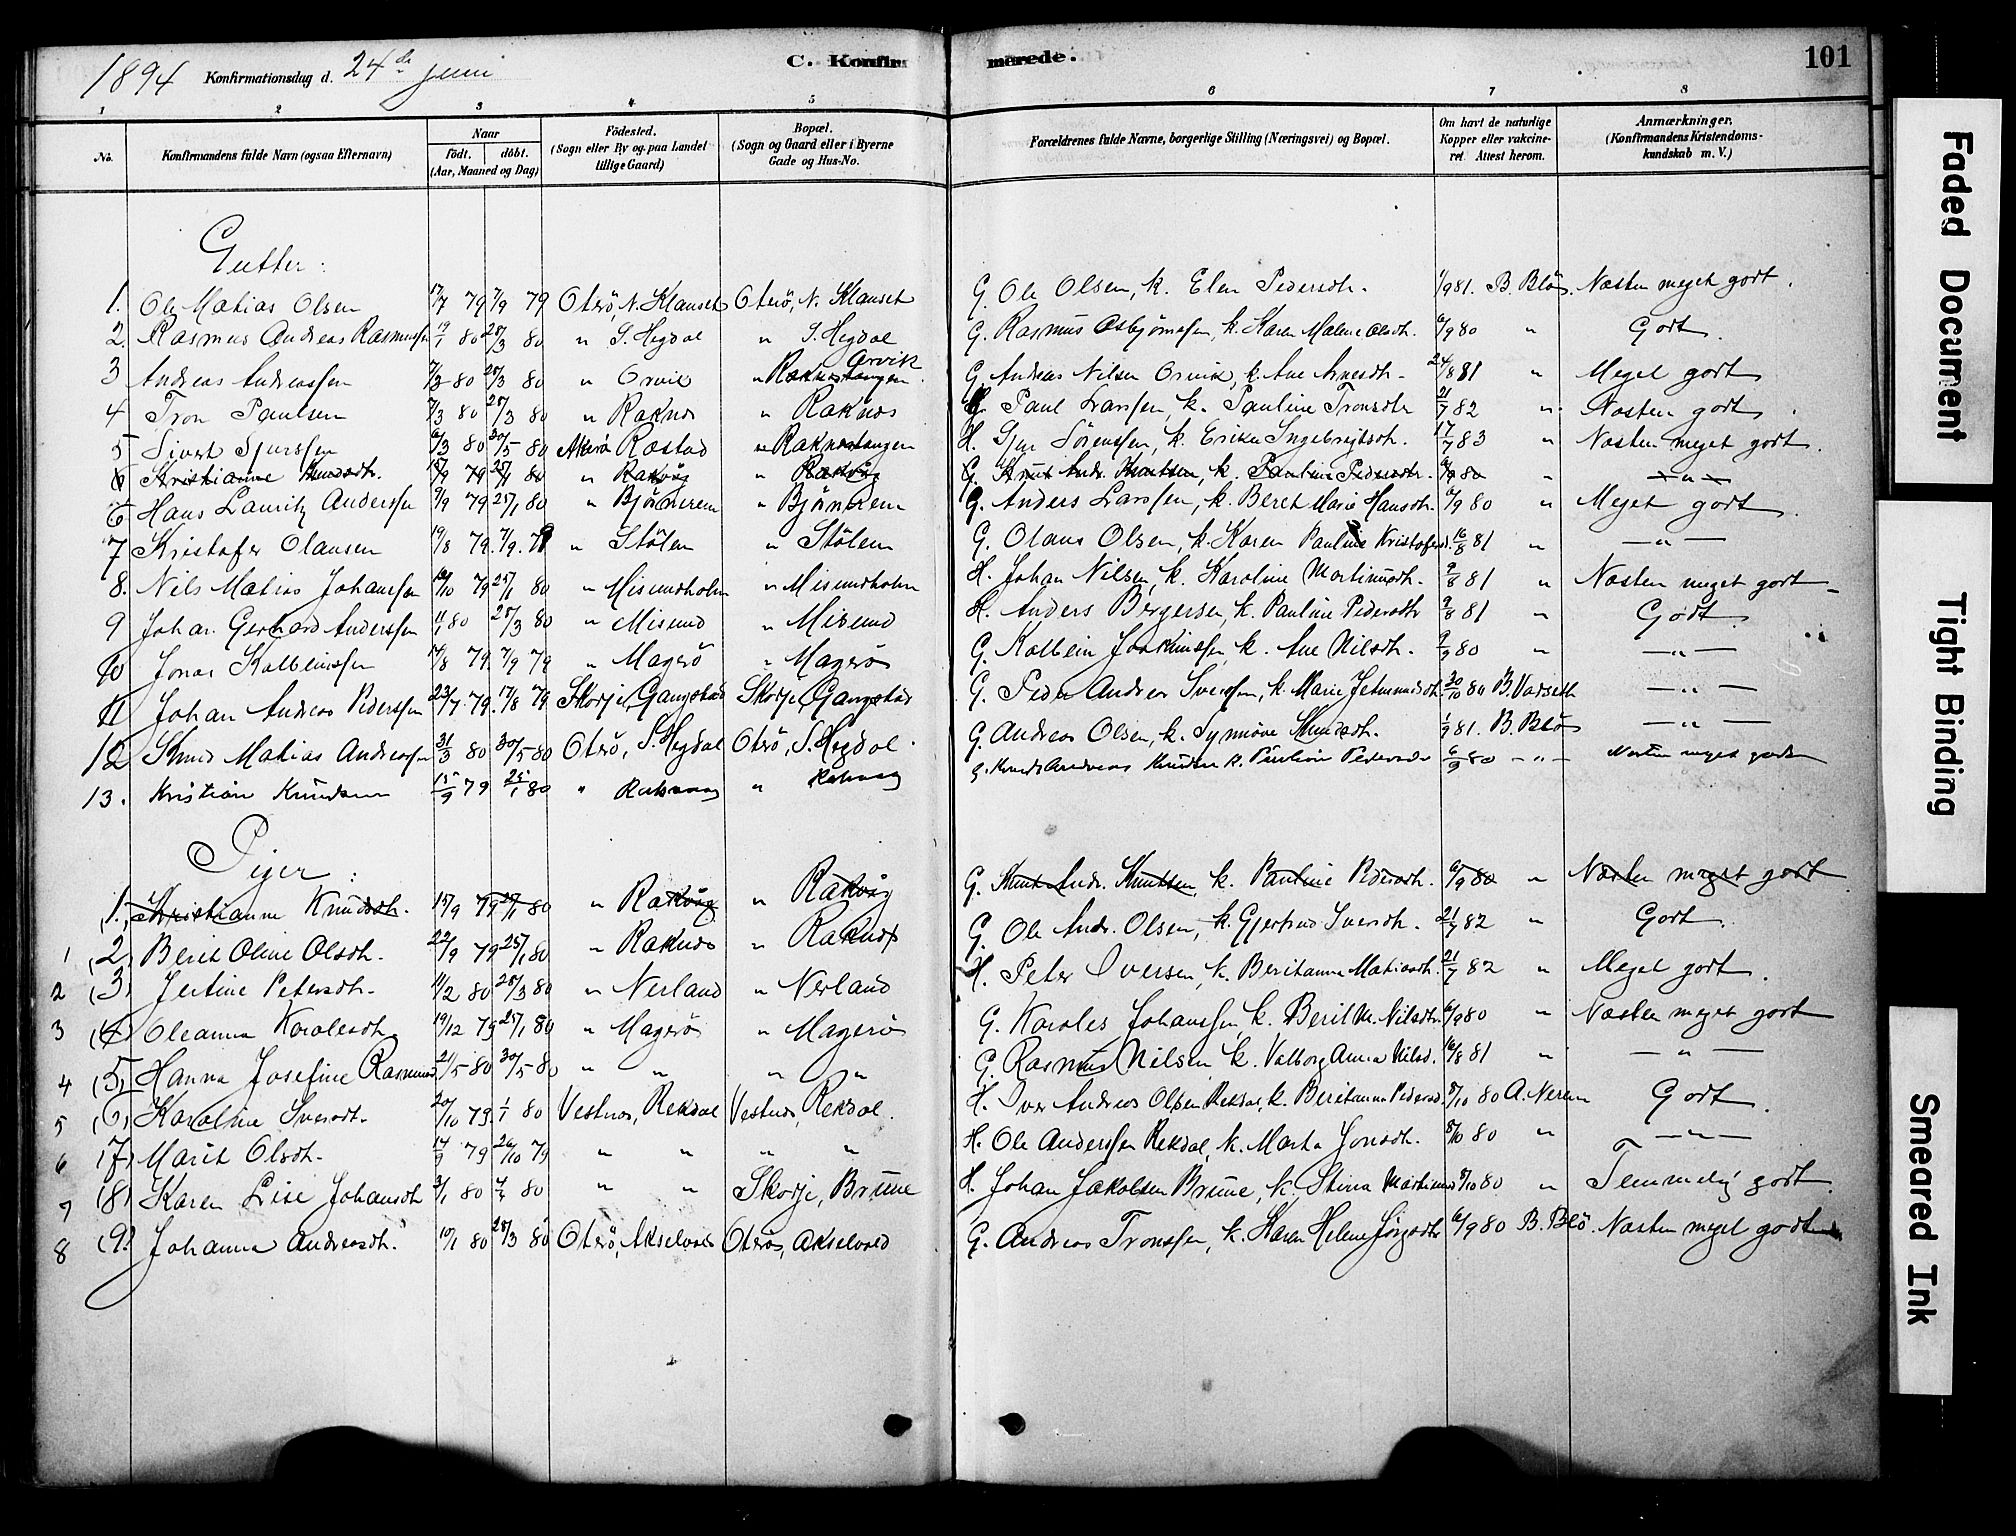 1894 Konfirmationsdag d. 24de juni C. Konfirmerede. 101
1 2 3 4 5 6 7 8
No. Konfirmandens fulde Navn (ogsaa Efternavn) Naar født. døbt. (Aar, Maaned og Dag) Födested. (Sogn eller By og paa Landet tillige Gaard) Bopæl. (Sogn og Gaard eller i Byerne Gade og Hus-No. Forældrenes fulde Navne, borgerlige Stilling (Næringsvei) og Bopæl. Om havt de naturlige Kopper eller vakcineret. Attest herom. Anmærkninger. (Konfirmandens Kristendomskundskab m. V.)
Gutter:
1. Ole Matias Olsen 17/7 79 7/9 79 Oterö, N. Klauset Oterö, N. Klauset G. Ole Olsen, k. Elen Pedersdtr. 1/9 81. B. Blö. Næsten meget godt.
2. Rasmus Andreas Rasmussen 19/1 80 28/3 80 " S. Hegdal " S. Hegdal G. Rasmus Asbjørnsen, k. Karen Malene Olsdtr. 6/9 80 " Godt.
3 Andreas Andreassen 7/3 80 28/3 80 " Orvik " Raknestangen Orvik G. Andreas Nilsen Orvik, k. Ane Arnesdtr. 24/8 81 " Meget godt
4 Tron Paulsen 7/3 80 28/3 80 " Raknes " Raknes G. Paul Larssen, k. Pauline Tronsdtr 21/7 82 " Næsten godt.
5 Sivert Sjurssen 6/3 80 30/5 80 Akerö Røstad " Raknestangen H. Sjur Sörenssen, k. Erika Ingebregtsdtr. 17/7 83 " Næsten meget godt.
6 Kristianne Knudsdtr. 15/9 79 25/1 80 " Rakvåg " Rakvåg G. Knut Andr. Knutsen, k. Pauline Pedersdtr. 6/9 80 " — " —
6 Hans Lauritz Anderssen 9/9 79 25/1 80 " Bjørnerem " Bjørnerem G. Anders Larssen, k. Beret Marie Hansdtr. 6/9 80 " Meget godt.
7 Kristofer Olausen 19/8 79. 7/9. 79 " Stölen " Stölen G. Olaus Olsen, k. Karen Pauline Kristofersd. 16/8 81 " — " —
8. Nils Matias Johanssen 10/10 79 25/1 80 " Misundholm " Misundholm H. Johan Nilsen, k. Karoline Martinusdtr. 9/8 81 " Næsten meget godt
9 Johan Gerhard Anderssen 11/1 80 28/3 80 " Misund " Misund H. Anders Bergersen, k. Pauline Pedersdtr 9/8 81 " Godt.
10 Jonas Kolbeinssen 14/8 79. 7/9 79 " Magerö " Magerö G. Kolbein Joakimssen, k. Ane Nilsdtr. 9/9 80 " — " —
11 Johan Andreas Pederssen 23/7 79. 17/8 79 Skorje, Gangstad Skorje, Gangstad G. Peder Andreas Iverssen, k. Marie Jetmundsdtr. 20/10 80 B. Vadseth — " —
12 Knud Matias Andreassen 31/3 80 30/5 80 Oterö, S. Hegdal Oterö, S. Hegdal. G. Andreas Olsen, k. Synnöve Knudsdtr. 1/9 81. B. Blö — " —
13. Kristian Knudsen 15/9 79 25/1 80 " Rakvaag " Rakvaag G. Knud Andreas Knudsen k. Pauline Pedersdtr 6/9 80 — " — Næsten meget godt
Piger:
(1. Kristianne Knudsdtr. 15/9 79 25/1 80 " Rakvåg " Rakvåg G. Knut Andr. Knutsen, k. Pauline Pedersdtr. 6/9 80 " Næsten meget godt
1 (2) Berit Oline Olsdtr. 22/9 79 25/1 80 " Raknes " Raknes G. Ole Andr. Olsen, k. Gjertrud Iversdtr. 21/7 82 " Godt.
2 (3) Jertine Petersdtr. 11/2 80 28/3 80 " Nerland " Nerland H. Peter Iversen, k. Beritanna Matiasdtr. 21/7 82 " Meget godt.
3 (4) Oleanna Karolesdtr. 19/12 79 25/1 80 " Magerö " Magerö G. Karoles Johanssen k. Berit M. Nilsdtr. 6/9 80 " Næsten meget godt
4 (5) Hanna Josefine Rasmusd. 21/5 80 30/5 80 " " " " G. Rasmus Nilsen, k. Valborg Anna Nilsd. 16/8 81 " — " —
5 (6) Karoline Iversdtr. 20/10 79. 1/1 80 Vestnes, Rekdal Vestnes, Rekdal. H. Iver Andreas Olsen Rekdal, k. Beritanna Pedersd. 8/10 80 A. Nerem Godt.
6 (7) Marit Olsdtr. 14/9 79 26/10 79 " " " " H. Ole Anderssen Rekdal, k. Marta Jonsdtr. 8/10 80 " — " —
7 (8) Karen Lise Johansdtr 3/1 80 4/4 80 " " Skorje, Brune H. Johan Jakobsen Brune, k. Stina Martinusd 8/10 80 " Temmelig godt.
8 (9) Johanna Andreasdtr. 10/1 80 28/3 80 Oterö, Akselvold Oterö, Akselvold G. Andreas Tronssen, k. Karen Helene Jørgsdtr 6/9 80 B. Blö. Næsten meget godt
Faded Document
Tight Binding
Smeared Ink